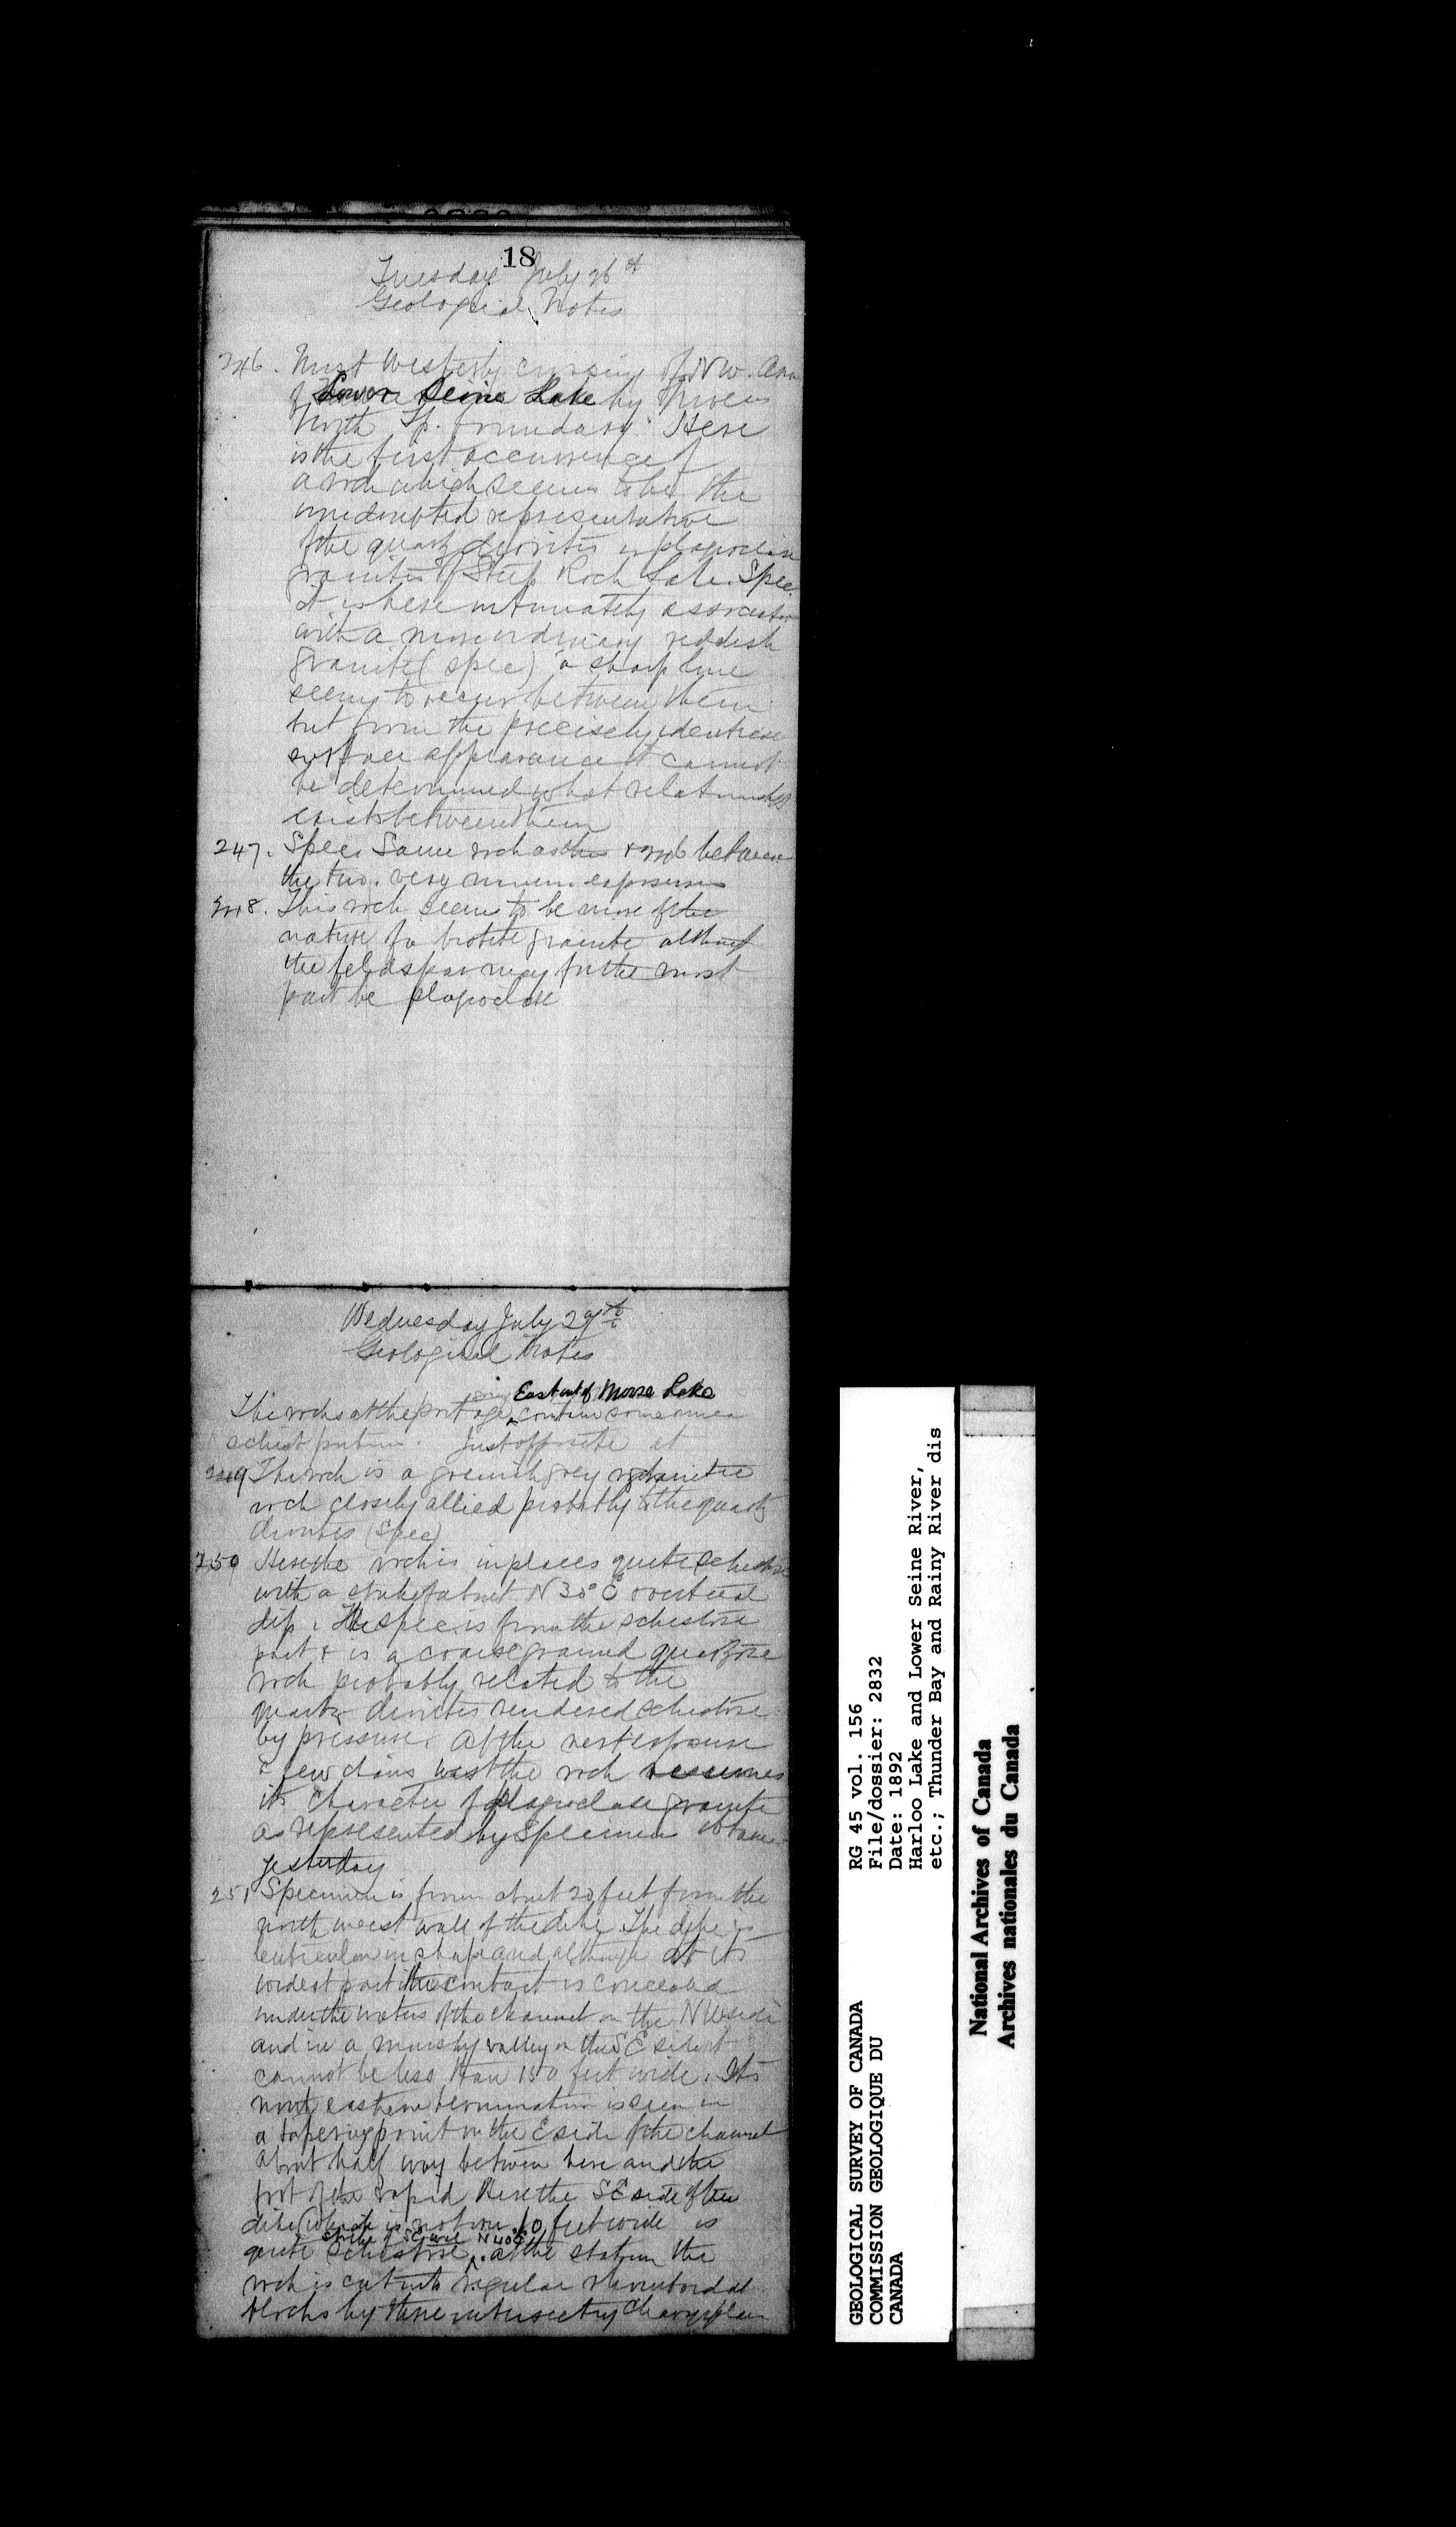 18
Tuesday July 26th
Geological Notes
246. Most Westerly crossing of NW. Arm
of Lower Seine Lake by Nivens
North Tp. boundary. Here
is the first occurrence of
a rock which seems to be the
undoubted representative
of the quartz diorites or plagioclase
granites of Steep Rock Lake. Spec.
It is here intimately associated
with a more ordinary reddish
granite (spec) a sharp line
seems to occur between them
but from the precisely identical
surface appearance it cannot
be determined what relationship
exists between them
247. Spec. Same rock as this & 246 between
the two. very numerous exposures
248. This rock seems to be more of the
nature of a biotite granite although
the feldspar may for the most
part be plagioclase
Wednesday July 27th
Geological Notes
East out of Moose Lake
The rocks at the portage contain some
schist Just opposite at
249 The rock is a greenish grey
rock closely allied probably to the quartz
diorites (Spec)
250 Here the rock is in places quite schistose
with a strike of about N 30° E & vertical
dip. The spec. is from the schistose
part & is a coarse grained quartzose
rock probably related to the
quartz diorites rendered schistose
by pressure. At the next exposure
a few chains west the rock resumes
its character of plagioclase granite
as represented by Specimen obtained
yesterday
251 Specimen is from about 20 feet from the
north west wall of the dike. The dike is
lenticular in shape and although at its
widest part the contact is concealed
under the waters of the channel on the NW side
and in a marshy valley on the SE side it
cannot be less than 150 feet wide. Its
north eastern termination is seen in
a tapering point on the E side of the channel
about half way between here and the
foot of the rapid Here the SE side of the
dike (which is not over 10 feet wide is
strike of SE wall N 40° E
quite schistose. At the station the
rock is cut into regular rhomboidal
blocks by three intersecting cleavage planes
GEOLOGICAL SURVEY OF CANADA
COMMISSION GEOLOGIQUE DU
CANADA
RG 45 vol. 156
File/dossier: 2832
Date: 1892
Harloo Lake and Lower Seine River,
etc.; Thunder Bay and Rainy River dis
National Archives of Canada
Archives nationales du Canada